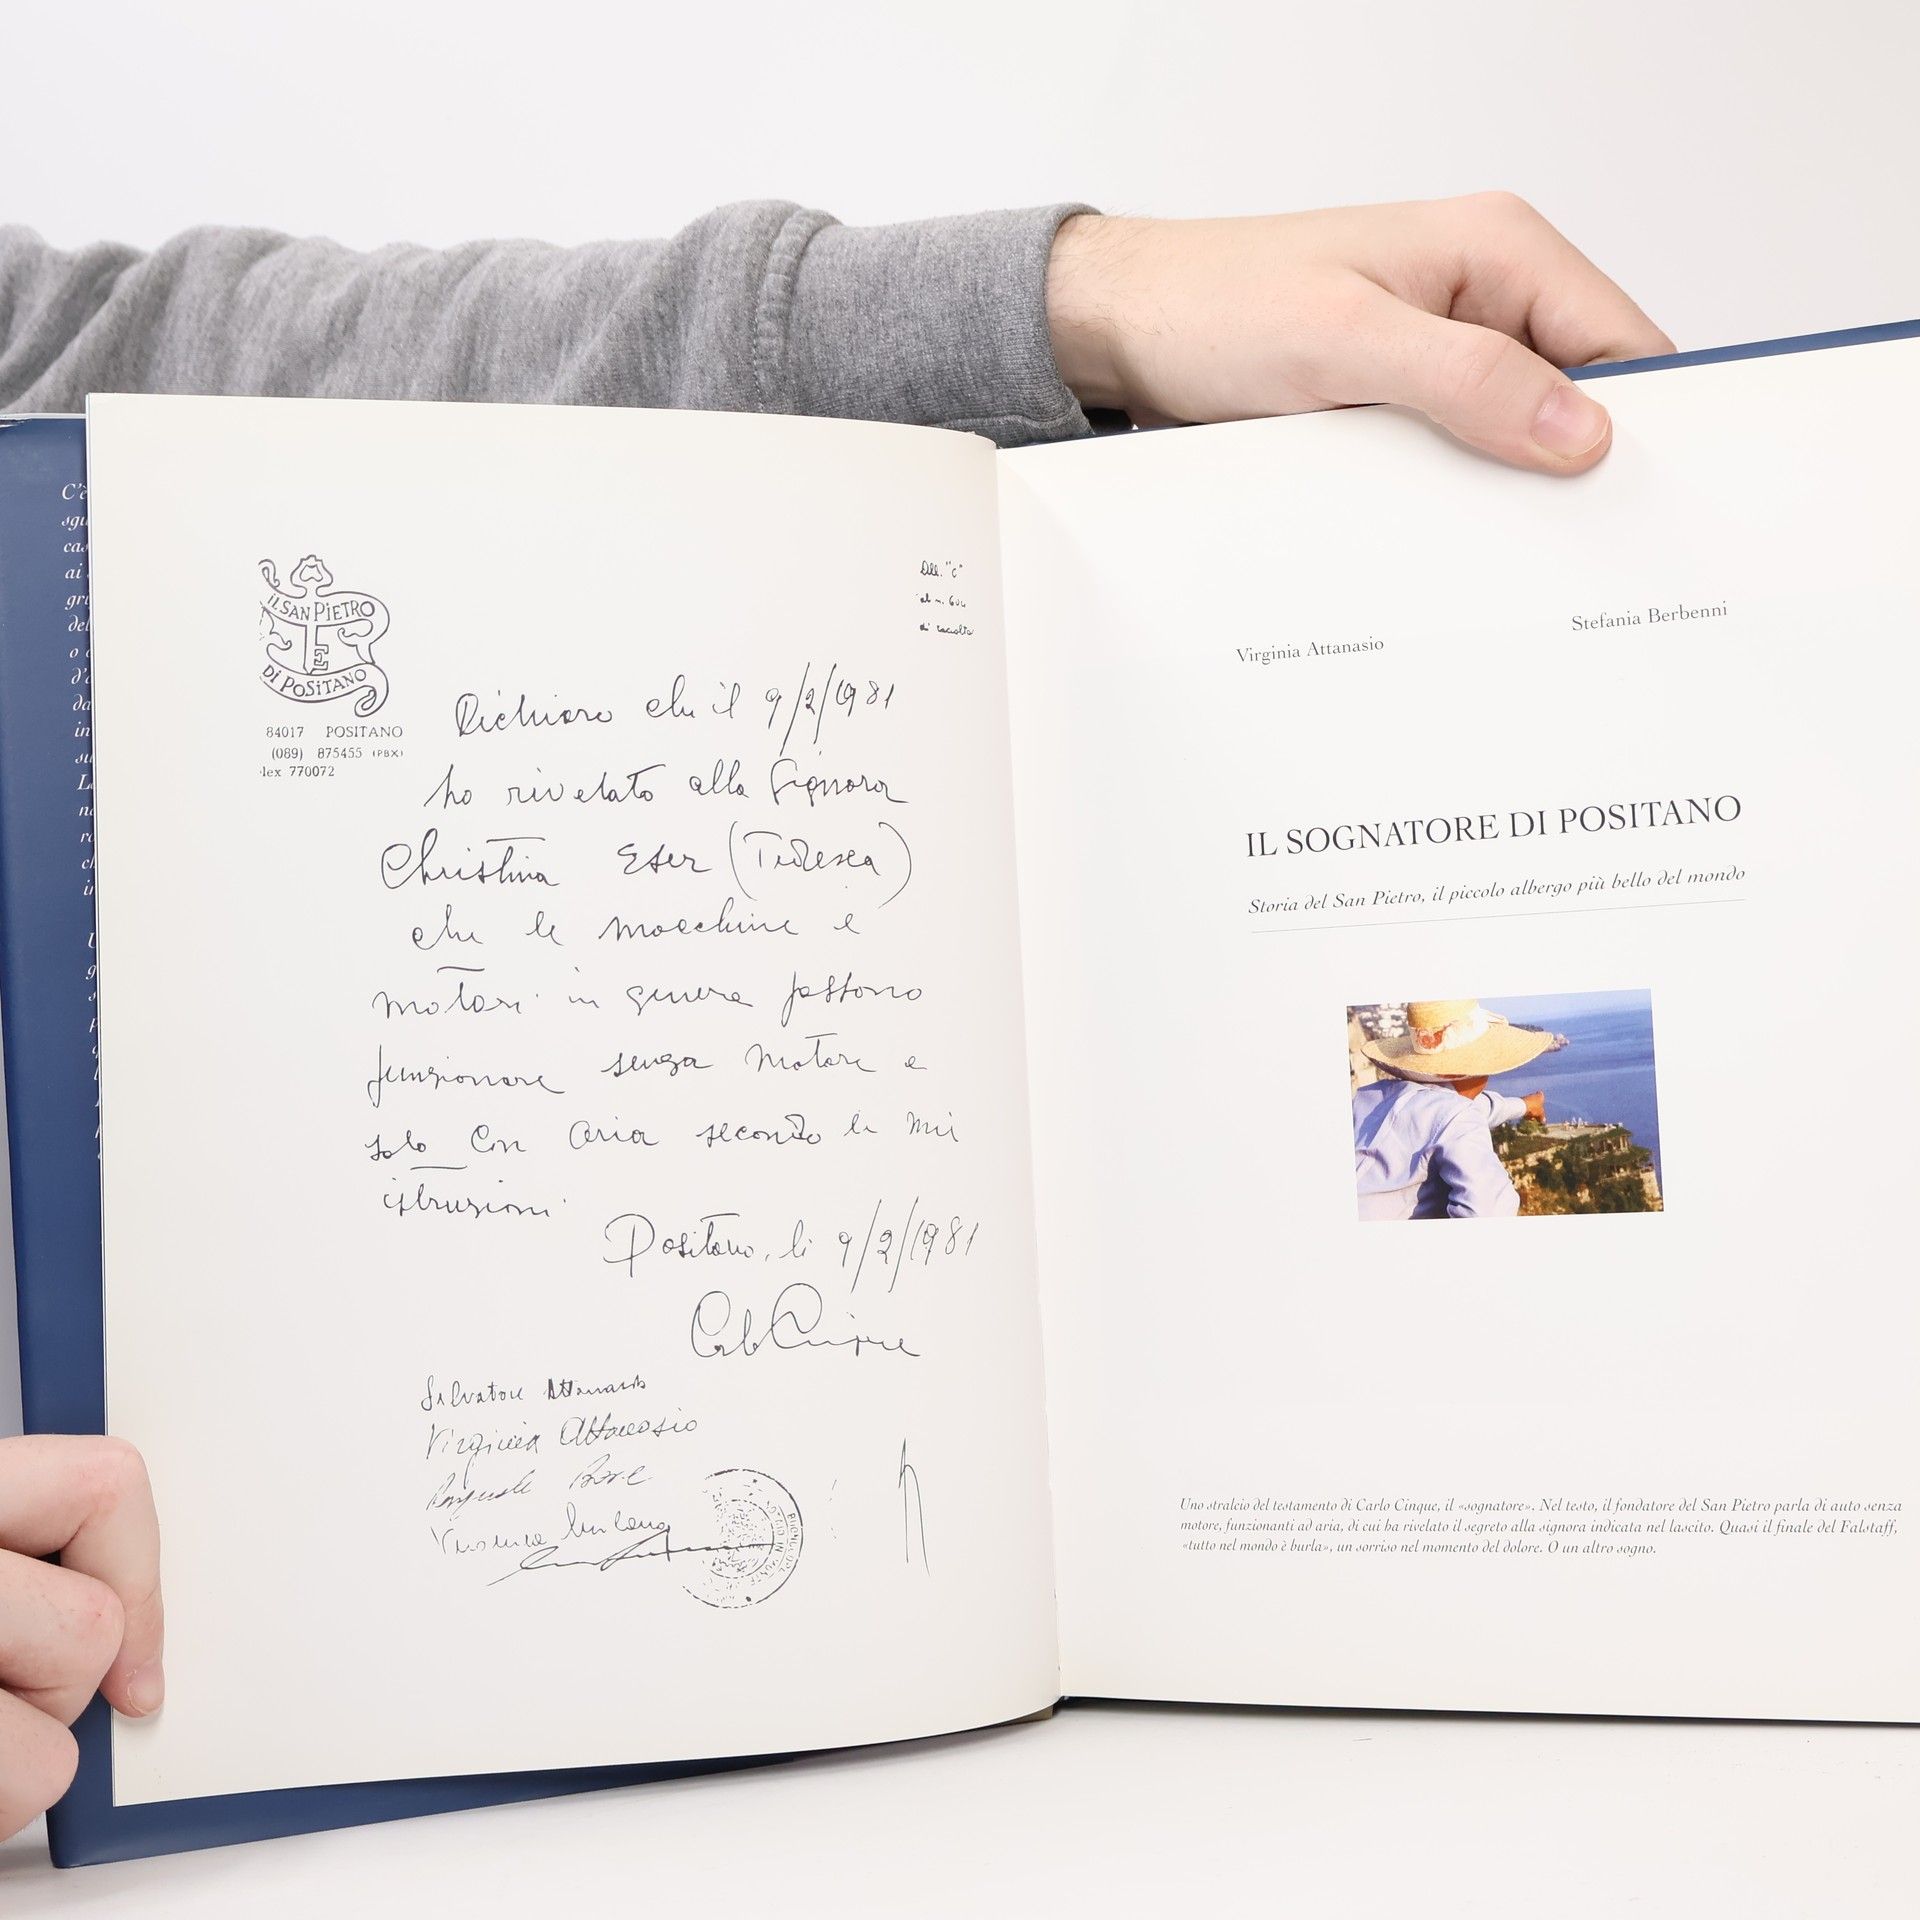 IL SAN PIETRO
DI POSITANO
84017 POSITANO
(089) 875455 (PBX)
lex 770072
All. "C"
di raccolta
Dichiaro che il 9/2/1981
ho rivelato alla Signora
Christina Eser (Tedesca)
che le macchine e
motori in genere possono
funzionare senza motore e
solo con aria secondo le mie
istruzioni.
Positano, li 9/2/1981
Carlo Cinque
Salvatore Attanasio
Virginia Attanasio
Virginia Attanasio
Stefania Berbenni
IL SOGNATORE DI POSITANO
Storia del San Pietro, il piccolo albergo più bello del mondo
Uno stralcio del testamento di Carlo Cinque, il «sognatore». Nel testo, il fondatore del San Pietro parla di auto senza
motore, funzionanti ad aria, di cui ha rivelato il segreto alla signora indicata nel lascito. Quasi il finale del Falstaff,
«tutto nel mondo è burla», un sorriso nel momento del dolore. O un altro sogno.